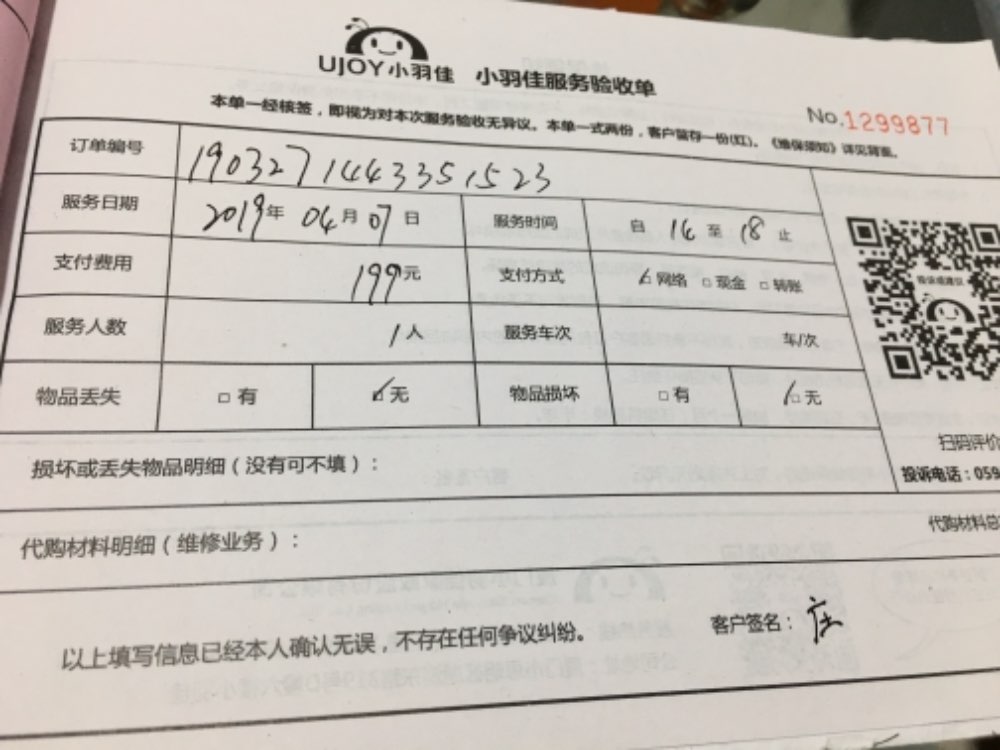 UJOY小羽佳 小羽佳服务验收单
No.1299877
本单一经核签，即视为对本次服务验收无异议。本单一式两份，客户留存一份(红)。《维保须知》详见背面。
订单编号 1903271443351523
服务日期 2019年 04月 07日 服务时间 自 14 至 18 止
支付费用 199元 支付方式 网络 现金 转账
投诉或建议
服务人数 1人 服务车次 车/次
物品丢失 有 无 物品损坏 有 无
扫码评价
损坏或丢失物品明细（没有可不填）：
投诉电话：059
代购材料总
代购材料明细（维修业务）：
以上填写信息已经本人确认无误，不存在任何争议纠纷。
客户签名：